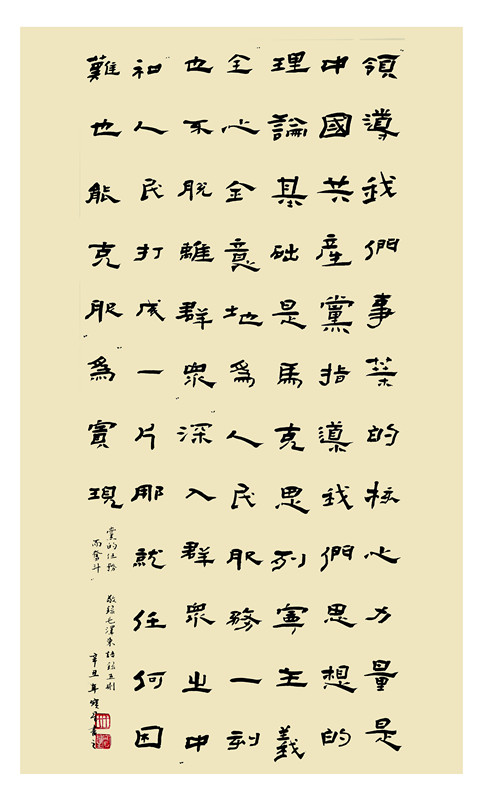 領導我們事業的核心力量是
中國共産黨指導我們思想的
理論基础是馬克思列寧主義
全心全意地為人民服務一刻
也不脱離群眾深入群眾之中
和人民打成一片那就任何困
難也能克服為實現
黨的任務
而奮斗
敬録毛澤東語録五則
辛丑年